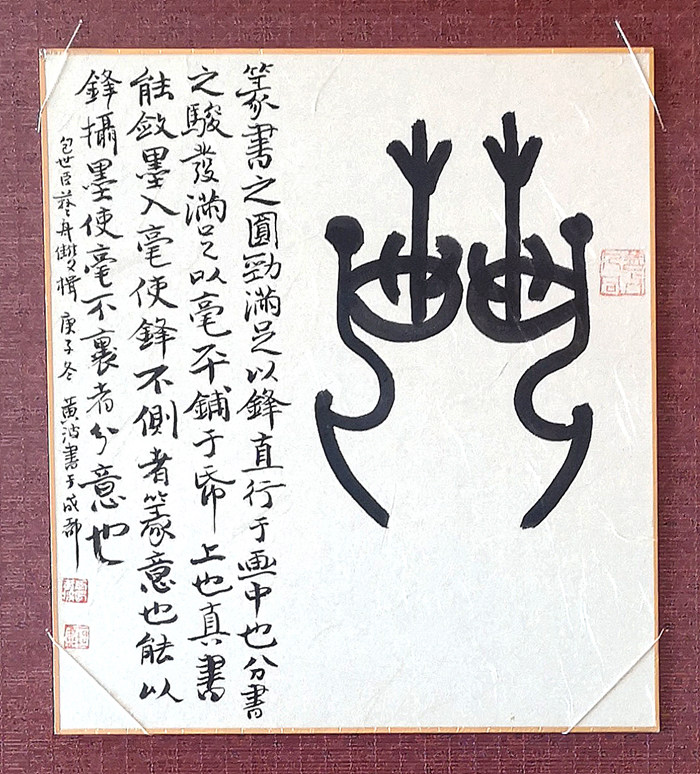 篆書之圓勁滿足以鋒直行于畫中也分書
之駿發滿足以毫平鋪于帋上也真書
能斂墨入毫使鋒不側者篆意也能以
鋒攝墨使毫不裹者分意也
包世臣藝舟雙楫 庚子冬 黃書于成都